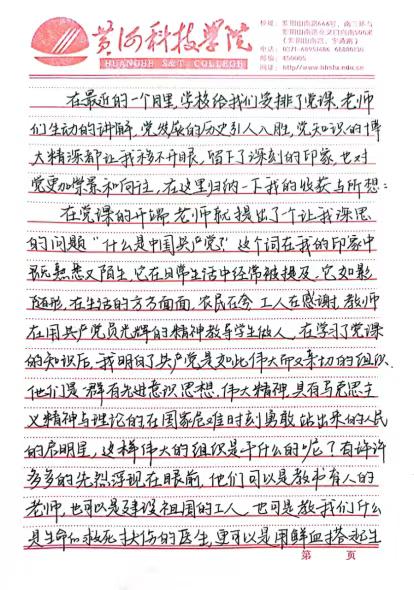 黄河科技学院
HUANGHE S&T COLLEGE
邮编：450005
在最近的一个月里，学校给我们安排了党课，老师
们生动的讲解，党发展的历史引人入胜，党知识的博
大精深都让我移不开眼，留下了深刻的印象，也对
党更加崇景和向往，在这里归纳一下我的收获与所想：
在党课的开端，老师就提出了个让我深思
的问题“什么是中国共产党？”这个词在我的印象中
既熟悉又陌生，它在日常生活中经常被提及，它如影
随形，在生活的方方面面，农民在会，工人在感谢，教师
在用共产党员光辉的精神教导学生做人，在学习了党课
的知识后，我明白了共产党是如此伟大而又亲切的组织，
他们是一群有先进意识思想，伟大精神，具有马克思主
义精神与理论的在国家危难时刻勇敢站出来的人民
的启明星，这样伟大的组织是干什么的呢？有许许
多多的先烈浮现在眼前，他们可以是教书育人的
老师，也可以是建设祖国的工人，也可是教我们什么
是生命的救死扶伤的医生，更可以是用鲜血搭起生
第 页